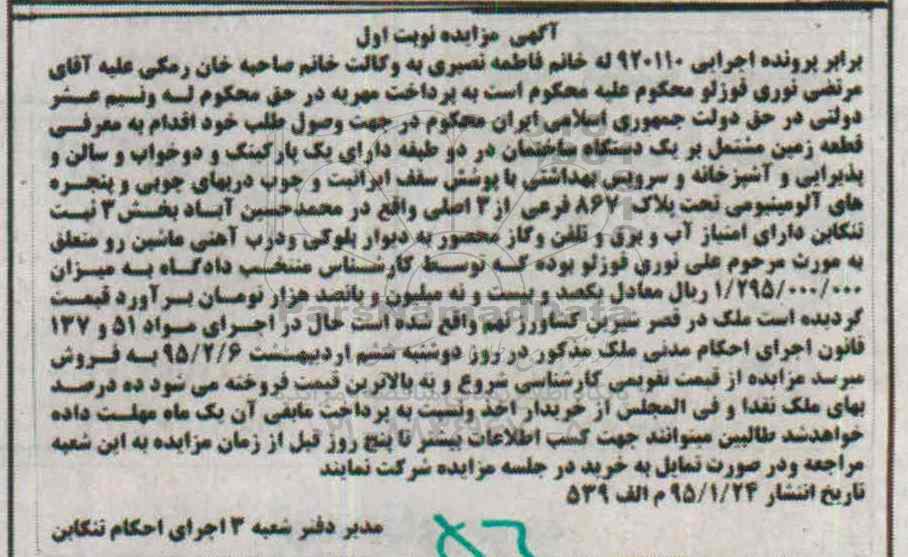 آگهی مزایده نوبت اول
برابر پرونده اجرایی ۹۲۰۱۱۰ له خانم فاطمه نصیری به وکالت خانم صاحبه خان رمکی علیه آقای
مرتضی نوری قوزلو محکوم علیه محکوم است به پرداخت مهریه در حق محکوم له ونیم عشر
دولتی در حق دولت جمهوری اسلامی ایران محکوم در جهت وصول طلب خود اقدام به معرفی
قطعه زمین مشتمل بر یک دستگاه ساختمان در دو طبقه دارای یک پارکینک و دوخواب و سالن و
پذیرایی و آشپزخانه و سرویس بهداشتی با پوشش سقف ایرانیت و چوب دربهای چوبی و پنجره
های آلومینیومی تحت پلاک ۸۶۷ فرعی از ۳ اصلی واقع در محمدحسین آباد بخش ۳ ثبت
تنکابن دارای امتیاز آب و برق و تلفن وگاز محصور به دیوار بلوکی ودرب آهنی ماشین رو متعلق
به مورث مرحوم علی نوری قوزلو بوده که توسط کارشناس منتخب دادگاه به میزان
۱/۲۹۵/۰۰۰/۰۰۰ ریال معادل یکصد و بیست و نه میلیون و پانصد هزار تومان برآورد قیمت
گردیده است ملک در قصر شیرین کشاورز نهم واقع شده است حال در اجرای مواد ۵۱ و ۱۳۷
قانون اجرای احکام مدنی ملک مذکور در روز دوشنبه ششم اردیبهشت ۹۵/۲/۶ به فروش
میرسد مزایده از قیمت تقویمی کارشناسی شروع و به بالاترین قیمت فروخته می شود ده درصد
بهای ملک نقدا و فی المجلس از خریدار اخذ ونسبت به پرداخت مابقی آن یک ماه مهلت داده
خواهدشد طالبین میتوانند جهت کسب اطلاعات بیشتر تا پنج روز قبل از زمان مزایده به این شعبه
مراجعه ودر صورت تمایل به خرید در جلسه مزایده شرکت نمایند
تاریخ انتشار ۹۵/۱/۲۴ م الف ۵۳۹
مدیر دفتر شعبه ۳ اجرای احکام تنکابن
ParsNamadData